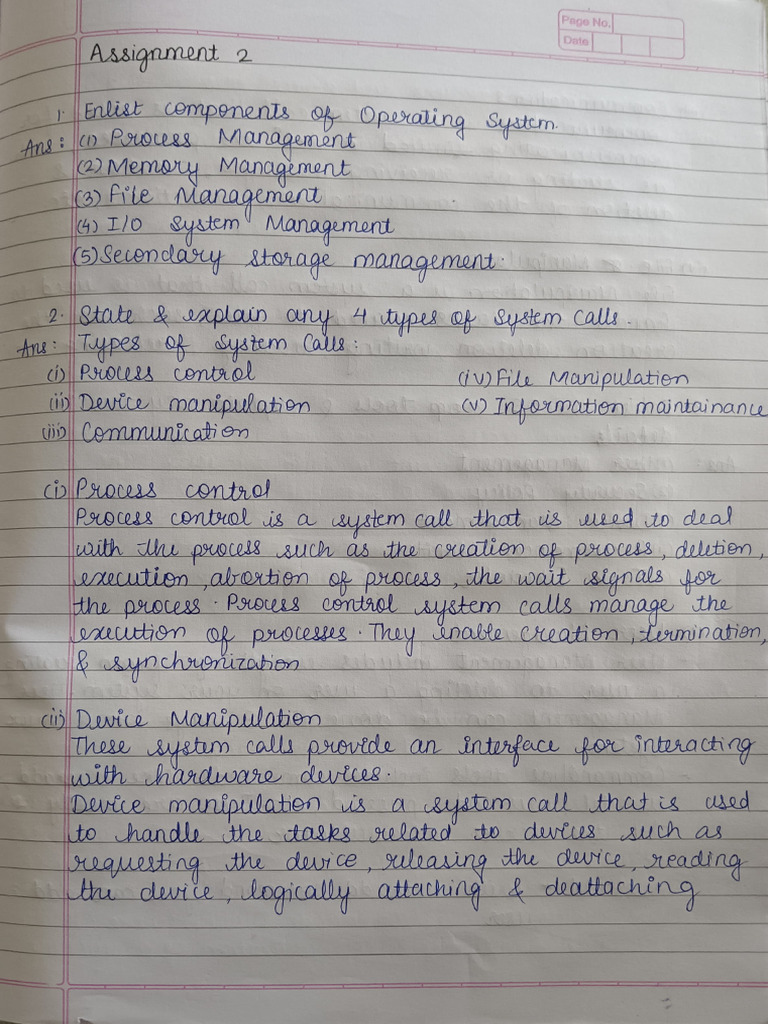 Page No.
Date
Assignment 2
1. Enlist components of Operating System.
Ans: (1) Process Management
(2) Memory Management
(3) File Management
(4) I/O System Management
(5) Secondary storage management.
2. State & explain any 4 types of System Calls.
Ans: Types of System Calls:
(i) Process control (iv) File Manipulation
(ii) Device manipulation (v) Information maintainance
(iii) Communication
(i) Process control
Process control is a system call that is used to deal
with the process such as the creation of process, deletion,
execution, abortion of process, the wait signals for
the process. Process control system calls manage the
execution of processes. They enable creation, termination,
& synchronization
(ii) Device Manipulation
These system calls provide an interface for interacting
with hardware devices.
Device manipulation is a system call that is used
to handle the tasks related to devices such as
requesting the device, releasing the device, reading
the device, logically attaching & deattaching